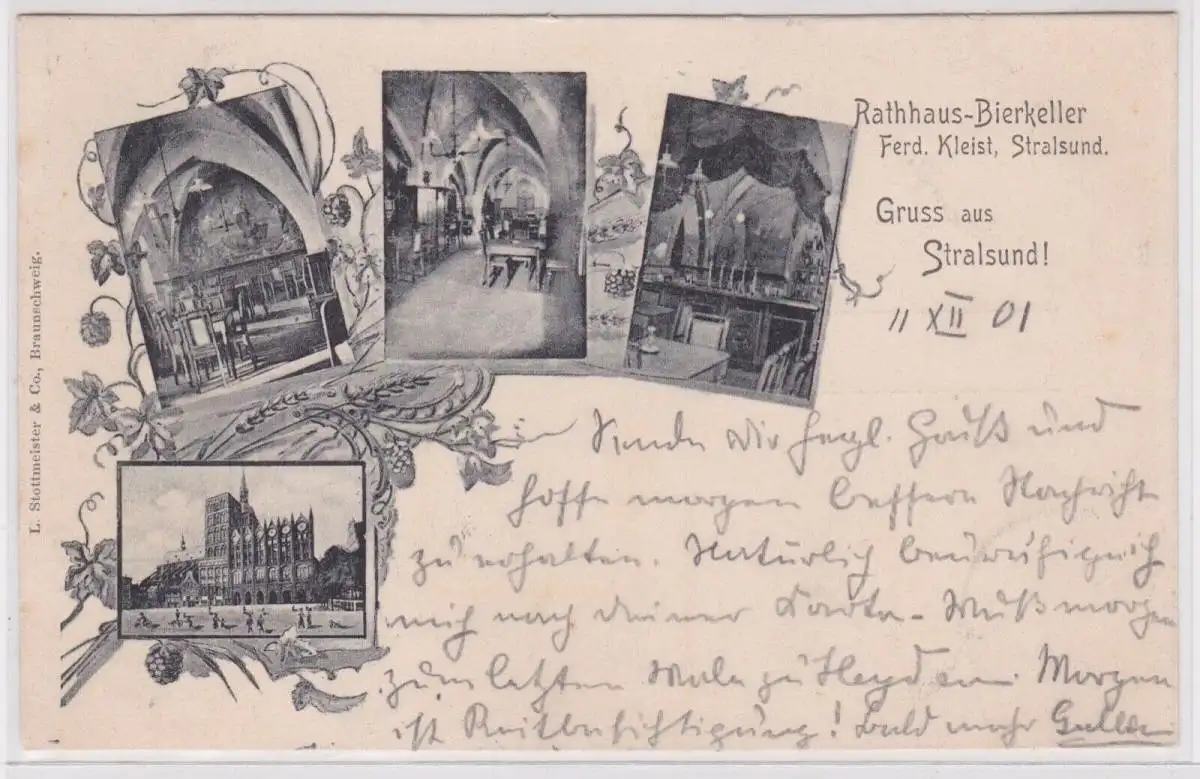 Rathhaus-Bierkeller
Ferd. Kleist, Stralsund.
Gruss aus
Stralsund!
11 XII 01
L. Stottmeister & Co., Braunschweig.
Sende Dir herzl. Gruß und
hoffe morgen bessere Nachricht
zu erhalten. Natürlich beunruhige ich
mich nach Deiner Karte. Muß morgen
zum letzten Male zu
Morgen
ist Reitbesichtigung! Bald mehr